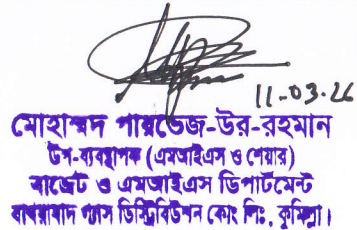 11-03-26
মোহাম্মদ পারভেজ-উর-রহমান
উপ-ব্যবস্থাপক (এমআইএস ও শেয়ার)
বাজেট ও এমআইএস ডিপার্টমেন্ট
বাখরাবাদ গ্যাস ডিস্ট্রিবিউশন কোং লিঃ, কুমিল্লা।